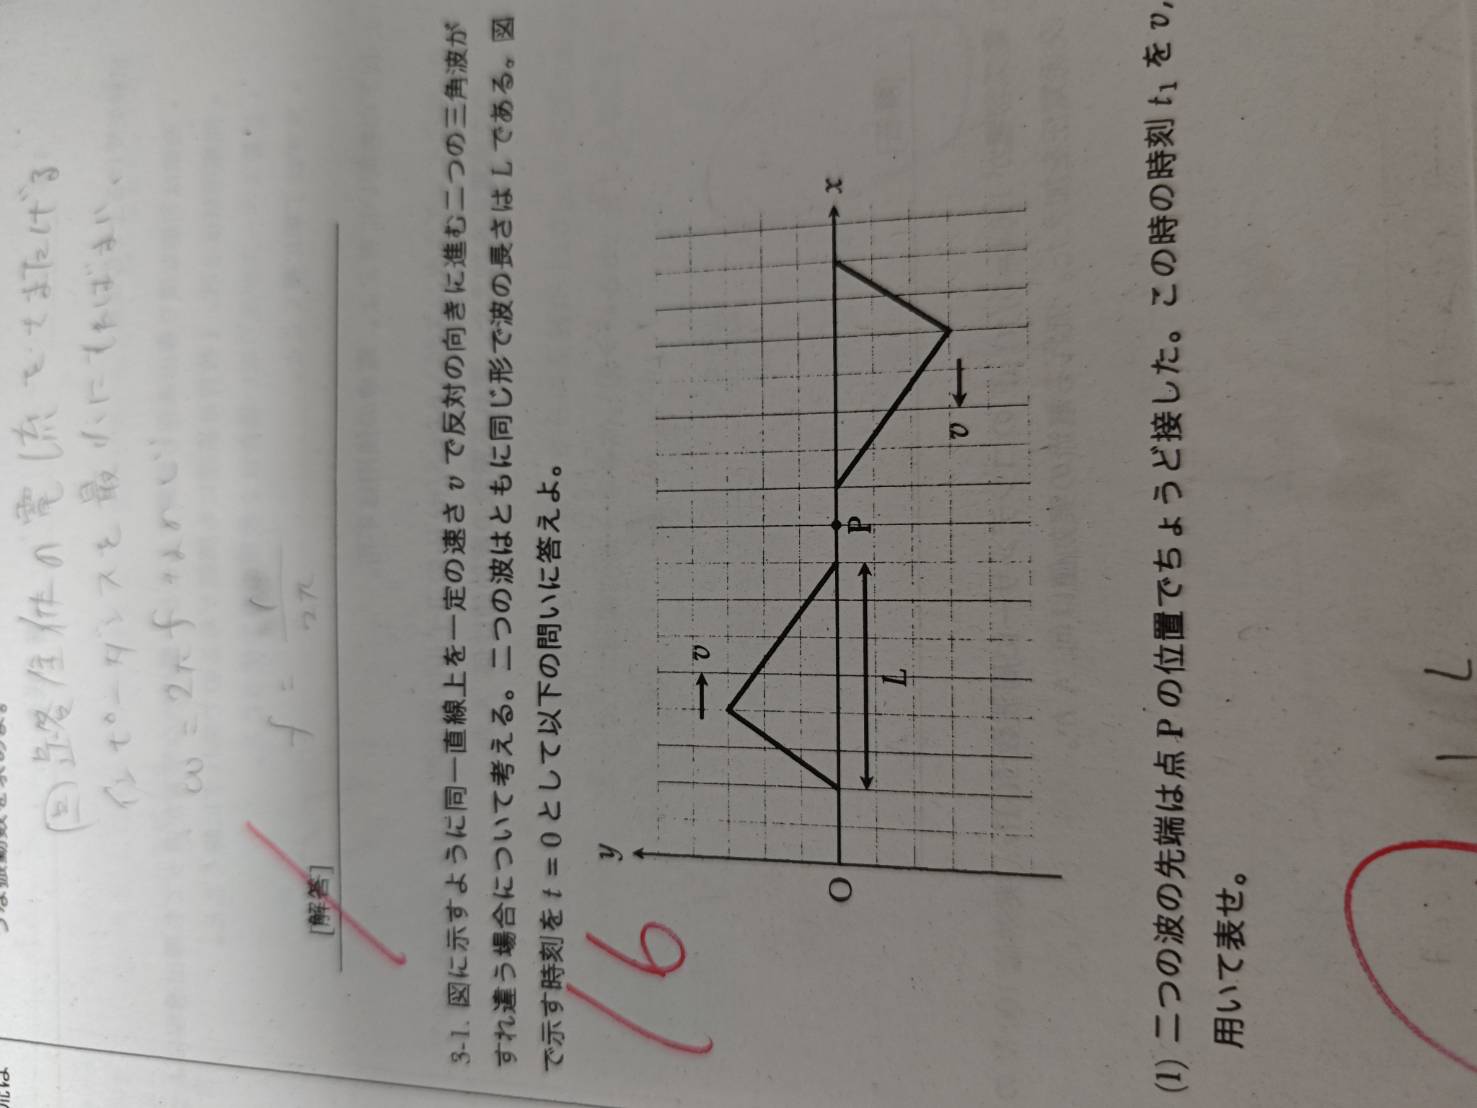 流は
うな振動数を求めよ。
回路全体の電流をさまたげる
インピーダンスを最小にすればよい、
ω = 2πf より
f = 1/2π
[解答]
3-1. 図に示すように同一直線上を一定の速さ v で反対の向きに進む二つの三角波が
すれ違う場合について考える。二つの波はともに同じ形で波の長さは L である。図
で示す時刻を t = 0 として以下の問いに答えよ。
16
y
v
O
P
x
L
v
(1) 二つの波の先端は点 P の位置でちょうど接した。この時の時刻 t₁ を v,
用いて表せ。
1 L